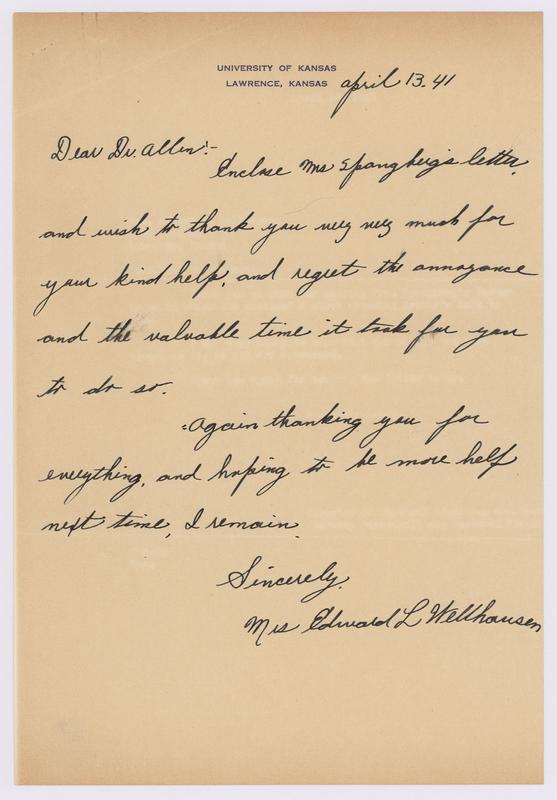 UNIVERSITY OF KANSAS
LAWRENCE, KANSAS
april 13. 41
Dear Dr. Allen:-
Enclose Mrs Spangberg's letter,
and wish to thank you very very much for
your kind help, and regret the annoyance
and the valuable time it took for you
to do so.
Again thanking you for
everything, and hoping to be more help
next time, I remain.
Sincerely,
Mrs Edward L Wellhausen